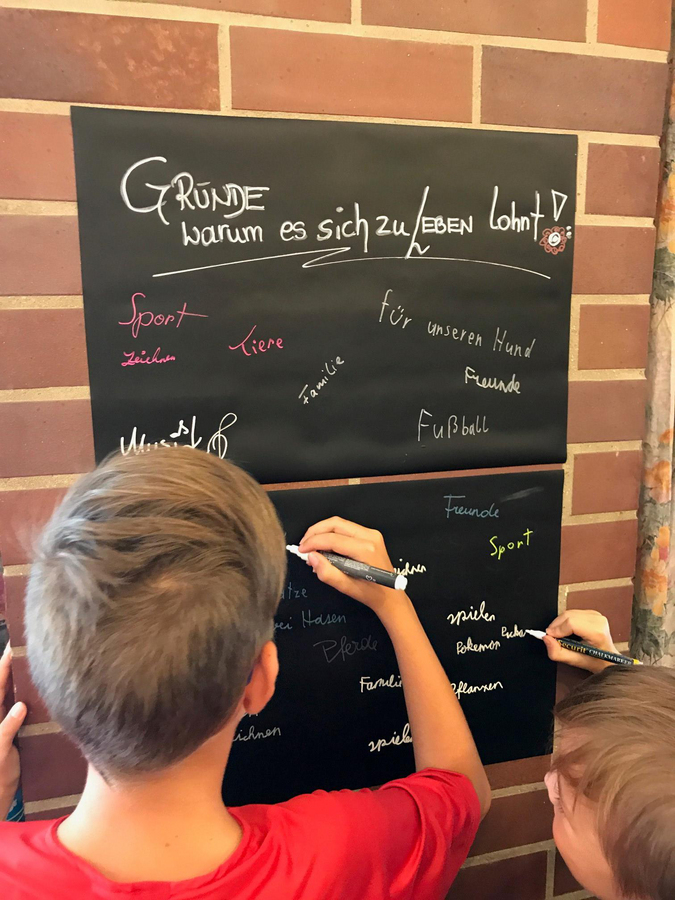 GRÜNDE
warum es sich zu LEBEN lohnt!
Sport
Zeichnen
Tiere
für unseren Hund
Familie
Freunde
Fußball
Musik
Freunde
Sport
Hasen
Pferde
spielen
Pokemon
Familie
Pflanzen
spielen
CHALKMARKER